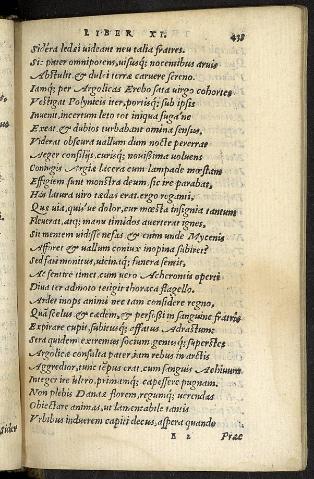 LIBER XI. 438
Sidera ledæi uideant neu talia fratres.
Sic pater omnipotens, uisusq; nocentibus aruis
Abstulit & dulci terræ caruere sereno.
Iamq; per Argolicas Erebo sata uirgo cohortes
Vestigat Polynicis iter, portisq; sub ipsis
Inuenit, incertum leto tot iniqua fuga'ne
Exeat & dubios turbabant omina sensus,
Viderat obscura uallum dum nocte pererrat
Aeger consilijs, curisq; nouissima uoluens
Coniugis Argiæ lacera cum lampade mœstam
Effigiem sunt monstra deum, sic ire parabat,
Hos latura uiro tædas erat. ergo rogami,
Quæ uia, quis'ue dolor, cur mœsta insignia tantum
Fleuerat, atq; manu timidos auerterat ignes,
Sit mentem uidisse nefas, & enim unde Mycenis
Afforet & uallum coniux inopina subiret?
Sed fati monitus, uicinaq; funera sentit,
Ac sentire timet. cum uero Acherontis operti
Diua ter admoto tetigit thoraca flagello.
Ardet inops animi nec tam considere regno,
Quàm scelus & cædem, & perfossi in sanguine fratris
Expirare cupit, subitusq; affatur Adrastum:
Sera quidem extremus socium gentisq; superstes
Argolicæ consulta pater, iam rebus in arctis
Aggredior, tunc tēpus erat, cum sanguis Achiuum
Integer ire ultro, primamq; capessere pugnam.
Non plebis Danaæ florem, regumq; uerendas
Obiectare animas, ut lamentabile tantis
Vrbibus induerem capiti decus, aspera quando
E 2 Prae